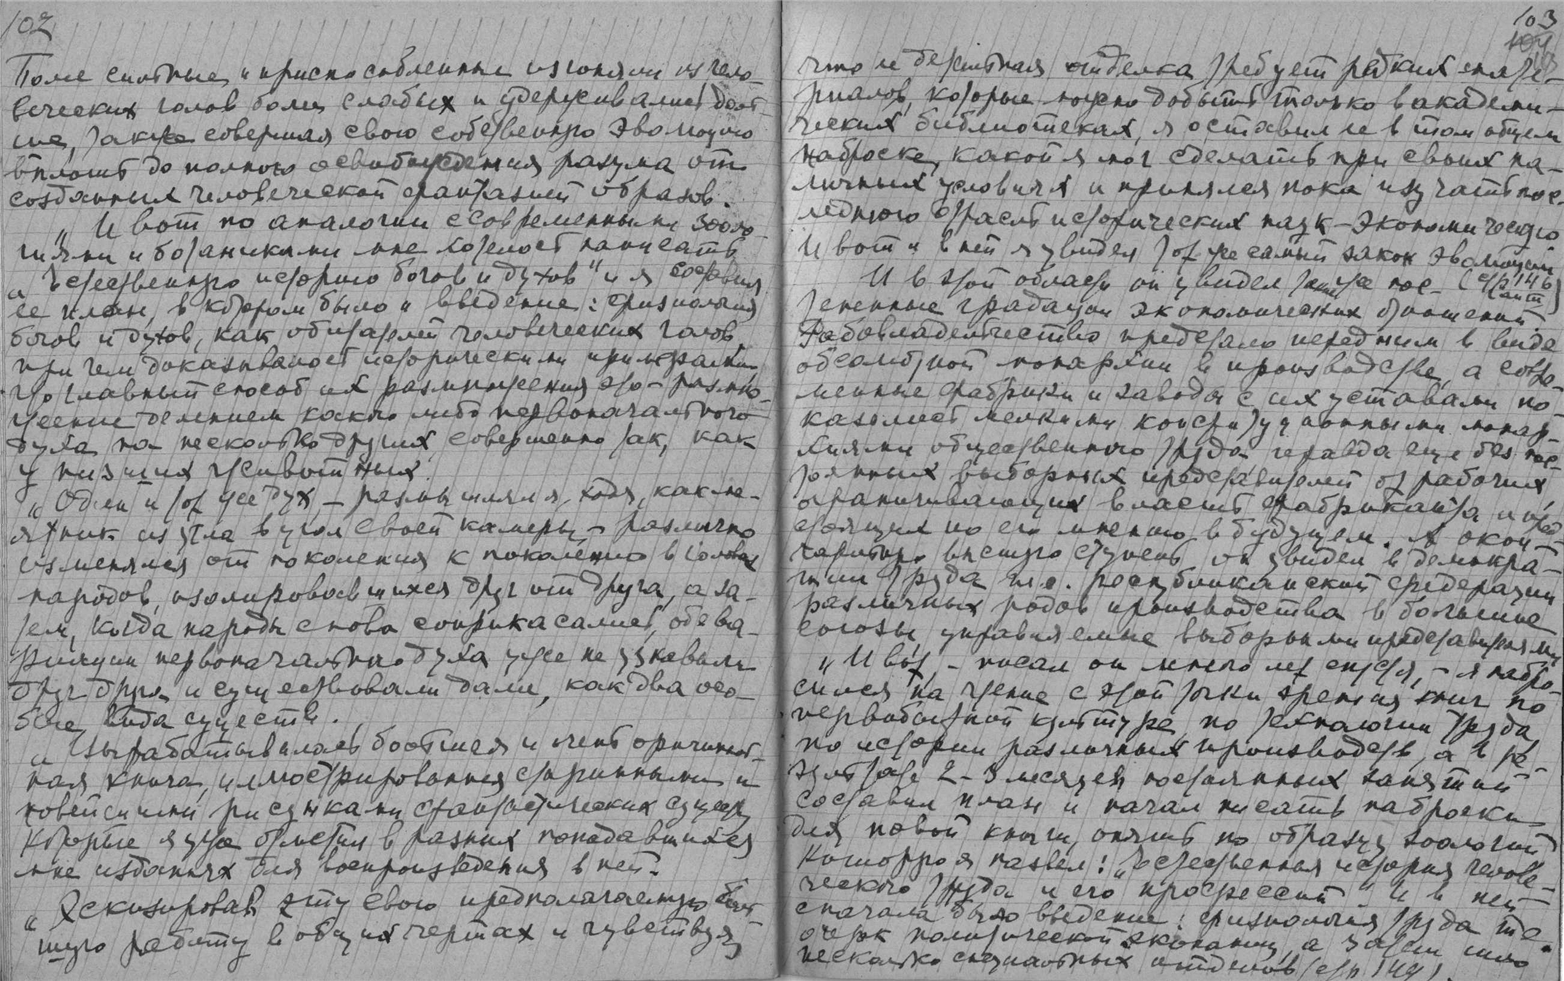 102
Более сильные и приспособленные изгоняли из чело-
веческих голов более слабых и удерживались доль-
ше, также совершая свою собственную эволюцию
вплоть до полного освобождения разума от
созданных человеческой фантазией образов.
„И вот по аналогии с современными зооло-
гиями и ботаниками мне хотелось написать
„Естественную историю богов и духов" и я составил
ее план, в котором было и введение: физиология
богов и духов, как обитателей человеческих голов,
при чем доказывалось историческими примерами
что главный способ их размножения это – размно-
жение делением какого либо первоначального
духа на несколько других совершенно так, как
у низших животных.
„Один и тот же дух, – размышлял я, ходя, как ма-
ятник из угла в угол своей камеры, – различно
изменялся от поколения к поколению в головах
народов, изолировавшихся друг от друга, а за-
тем, когда народы снова соприкасались, обе ва-
риации первоначального духа уже не узнавали
друг друга и существовали далее, как два осо-
бые вида существ.
„Вырабатывалась большая и очень оригиналь-
ная книга, иллюстрированная старинными и
новейшими рисунками фантастических существ
которые я уже отметил в разных попадавшихся
мне изданиях для воспроизведения в ней.
„Эскизировав эту свою предполагаемую боль-
шую работу в общих чертах и чувствуя,
103
что ее детальная отделка требует редких мате-
риалов, которые можно добыть только в академи-
ческих библиотеках, я оставил ее в том общем
наброске, какой я мог сделать при своих на-
личных условиях и принялся пока изучать пос-
леднюю отрасль исторических наук – экономическую
И вот и в ней я увидел тот же самый закон эволюции
(стр 146
И в этой области он увидел также пос-
тепенные градации экономических отношений
Рабовладельчество предстало перед ним в виде
абсолютной монархии в производстве, а совре-
менные фабрики и заводы с их уставами по-
казались мелкими конституционными монар-
хиями общественного труда правда еще без пос-
тоянных выборных представителей от рабочих
ограничивающих власть фабриканта и пред-
стоящих по его мнению в будущем. А окон-
чательную высшую ступень он увидел в демокра-
тии труда т.е. республиканской федерации
различных родов производства в большие
союзы, управляемые выборными представителями
„И вот, – писал он много лет спустя, – я набро-
сился на чтение с этой точки зрения книг по
первобытной культуре, по технологии труда,
по истории различных производств, а в ре-
зультате 2–3 месяцев постоянных занятий
составил план и начал писать наброски
для новой книги, опять по образцу зоологий
которую я назвал: „Естественная история челове-
ческого труда и его профессий". И в ней
сначала было введение: физиология труда т.е.
очерк политической экономии, а затем шло
несколько специальных отделов (стр 147).